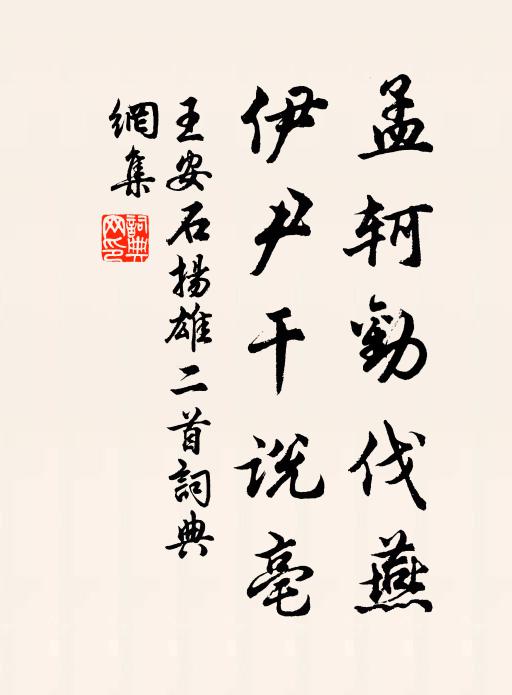 孟轲勸伐燕
伊尹干说亳
王安石揚雄二首詞典
網集
詞典網印